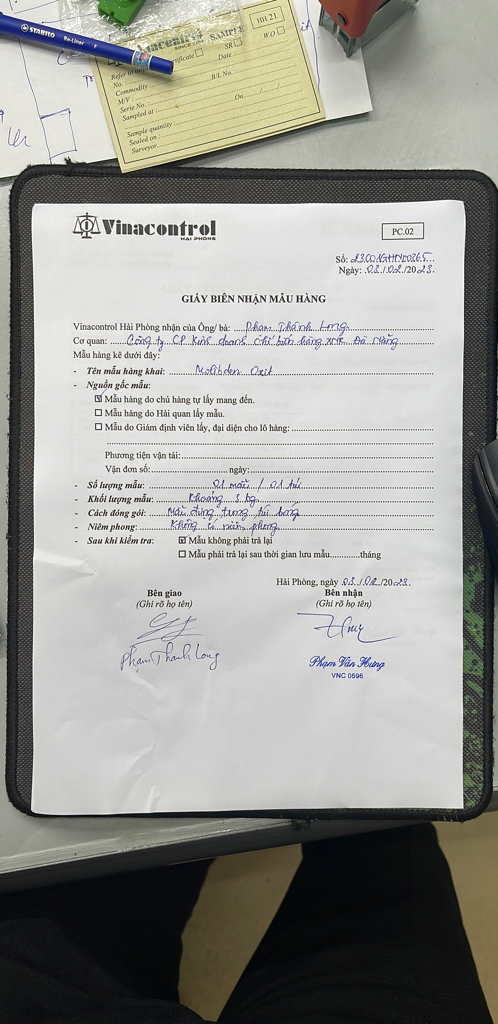 STABILO Re-Liner F
Vinacontrol
SINCE 1957
SAMPLE
HH 21
Certificate
SR
W.O
Refer to
No.
Date :
Commodity :
B/L No.
M/V :
Serie No.
Sampled at :
On
Sample quantity :
Sealed on :
Surveyor
Vinacontrol
HAI PHONG
PC.02
Số:
Ngày: 03/02/2023.
GIẤY BIÊN NHẬN MẪU HÀNG
Vinacontrol Hải Phòng nhận của Ông/ bà: Phạm Thành Long
Cơ quan: Công ty CP Kinh doanh chế biến hàng XNK Đà Nẵng
Mẫu hàng kê dưới đây:
- Tên mẫu hàng khai: Molibden Oxit
- Nguồn gốc mẫu:
Mẫu hàng do chủ hàng tự lấy mang đến.
Mẫu hàng do Hải quan lấy mẫu.
Mẫu do Giám định viên lấy, đại diện cho lô hàng:
Phương tiện vận tải:
Vận đơn số: ngày:
- Số lượng mẫu: 01 mẫu / 01 túi
- Khối lượng mẫu: Khoảng 3 kg
- Cách đóng gói: Mẫu đựng trong túi bóng
- Niêm phong: Không có niêm phong
- Sau khi kiểm tra: Mẫu không phải trả lại
Mẫu phải trả lại sau thời gian lưu mẫu tháng
Hải Phòng, ngày 03/02/2023.
Bên giao Bên nhận
(Ghi rõ họ tên) (Ghi rõ họ tên)
Phạm Thanh Long
Phạm Văn Hưng
VNC 0596